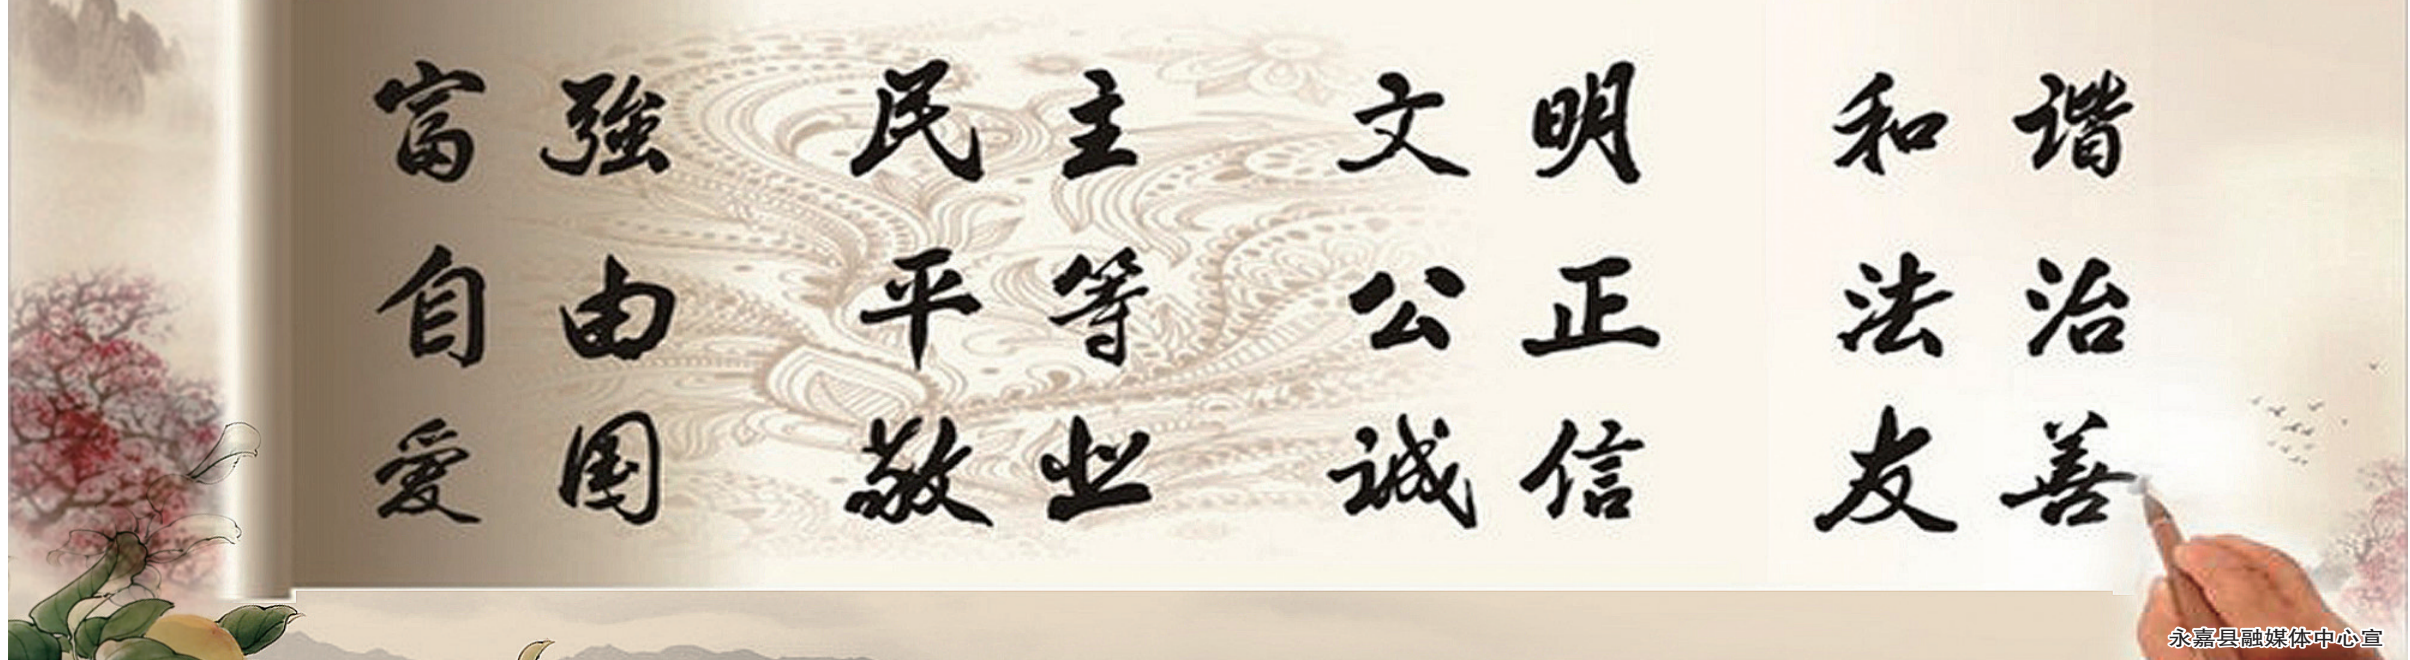 富强 民主 文明 和谐
自由 平等 公正 法治
爱国 敬业 诚信 友善
永嘉县融媒体中心宣